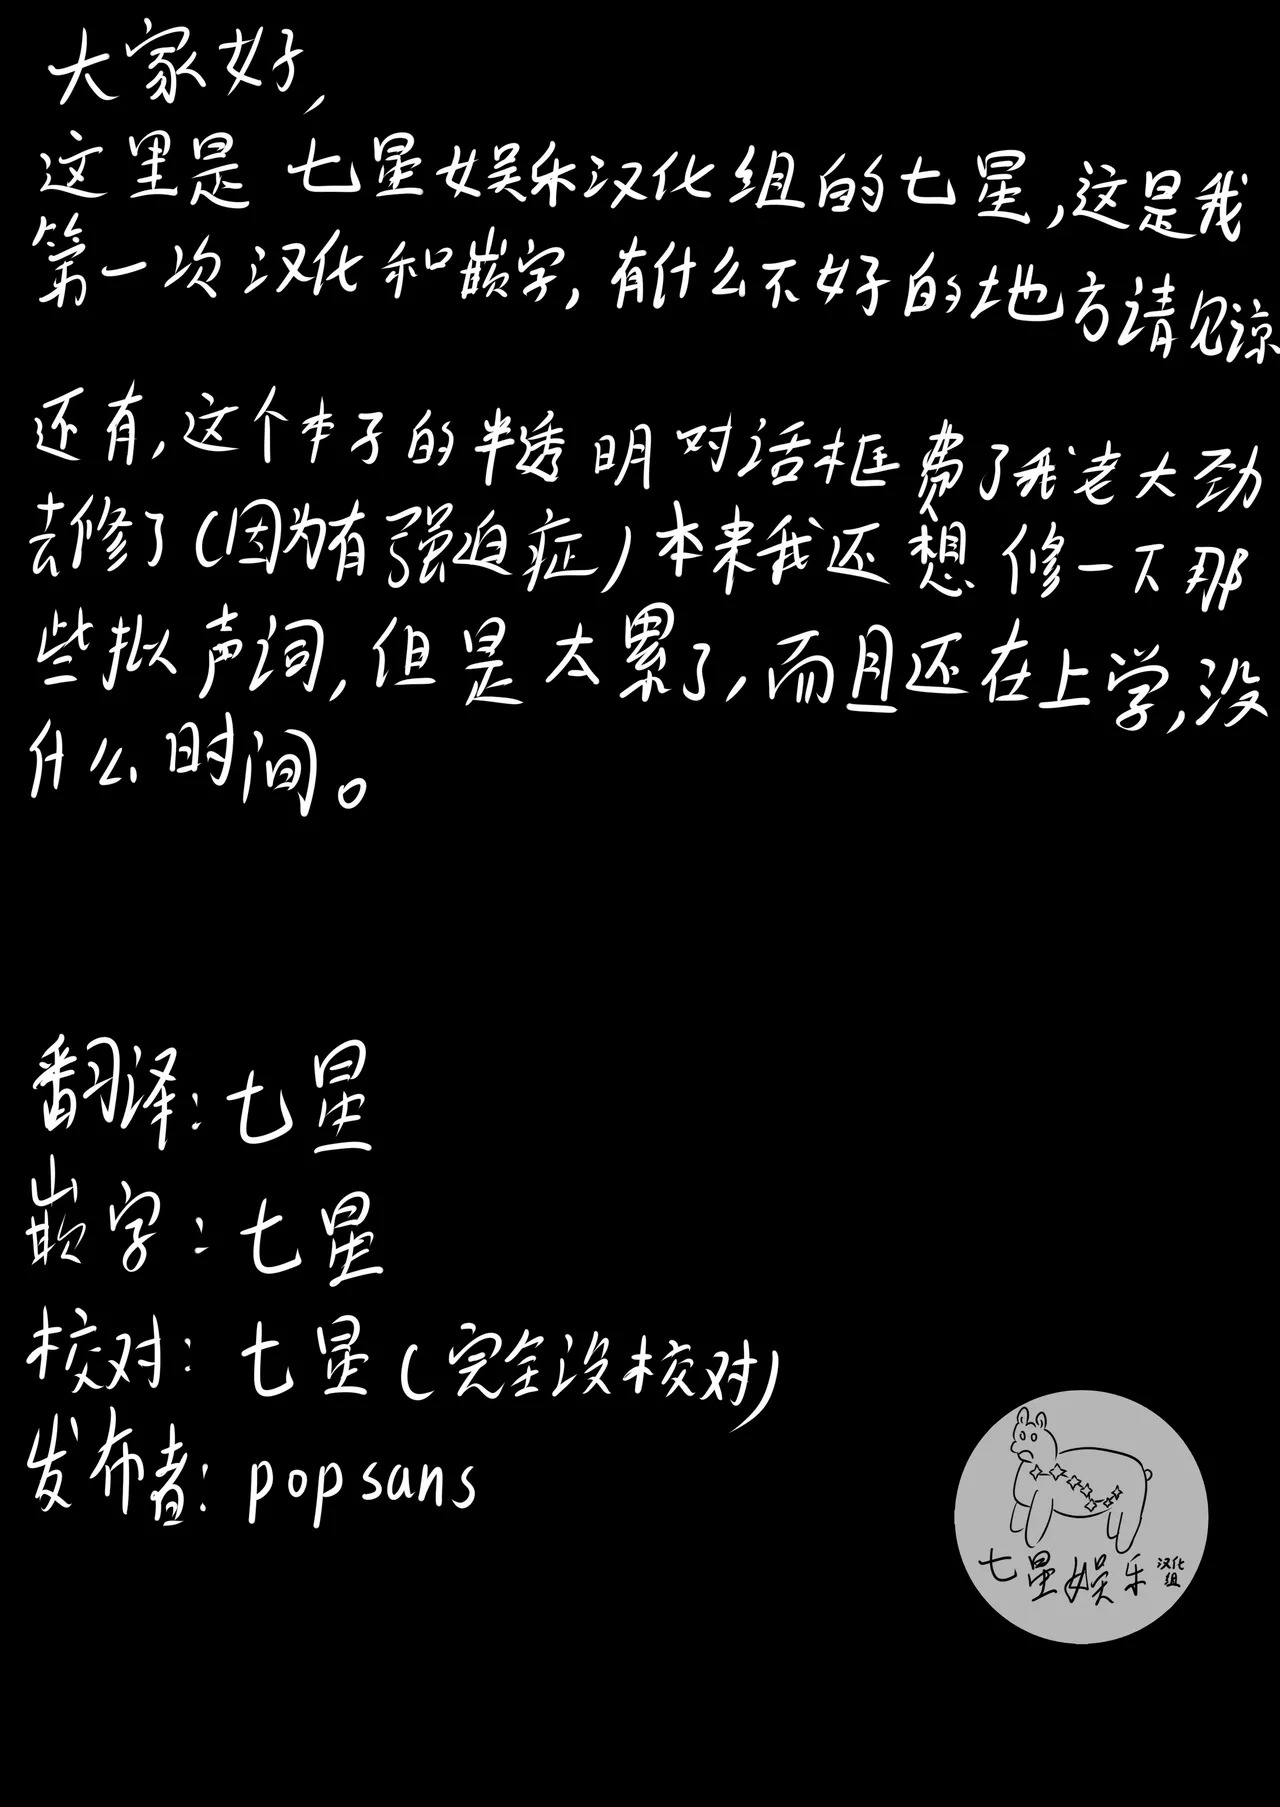 大家好,
这里是 七星娱乐汉化组的七星,这是我
第一次汉化和嵌字,有什么不好的地方请见谅
还有,这个本子的半透明对话框费了我老大劲
去修了(因为有强迫症)本来我还想修一下那
些拟声词,但是太累了,而且还在上学,没
什么时间。
翻译:七星
嵌字:七星
校对:七星(完全没校对)
发布者:popsans
七星娱乐汉化组